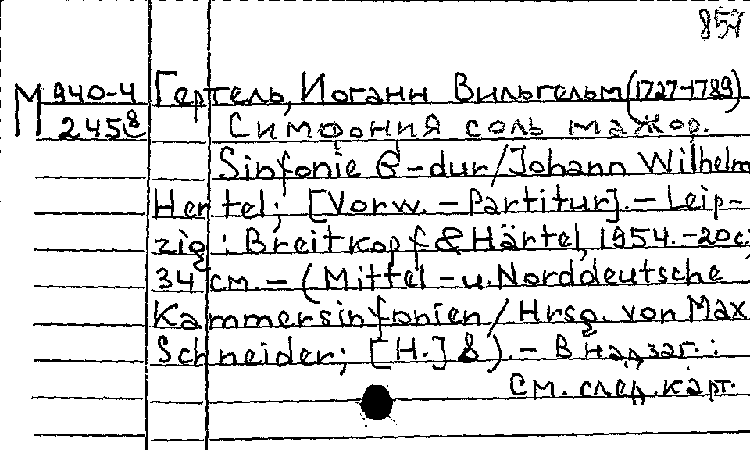 857
М 940-4 Гертель, Иоганн Вильгельм (1727-1789)
2458 Симфония соль мажор.
Sinfonie G-dur/Johann Wilhelm
Hertel; [Vorw. - Partitur]. - Leip-
zig: Breitkopf & Härtel, 1954. - 20 с;
34 см. - (Mittel - u. Norddeutsche
Kammersinfonien/Hrsg. von Max
Schneider; [H.] 8). - В надзаг.:
См. след. карт.